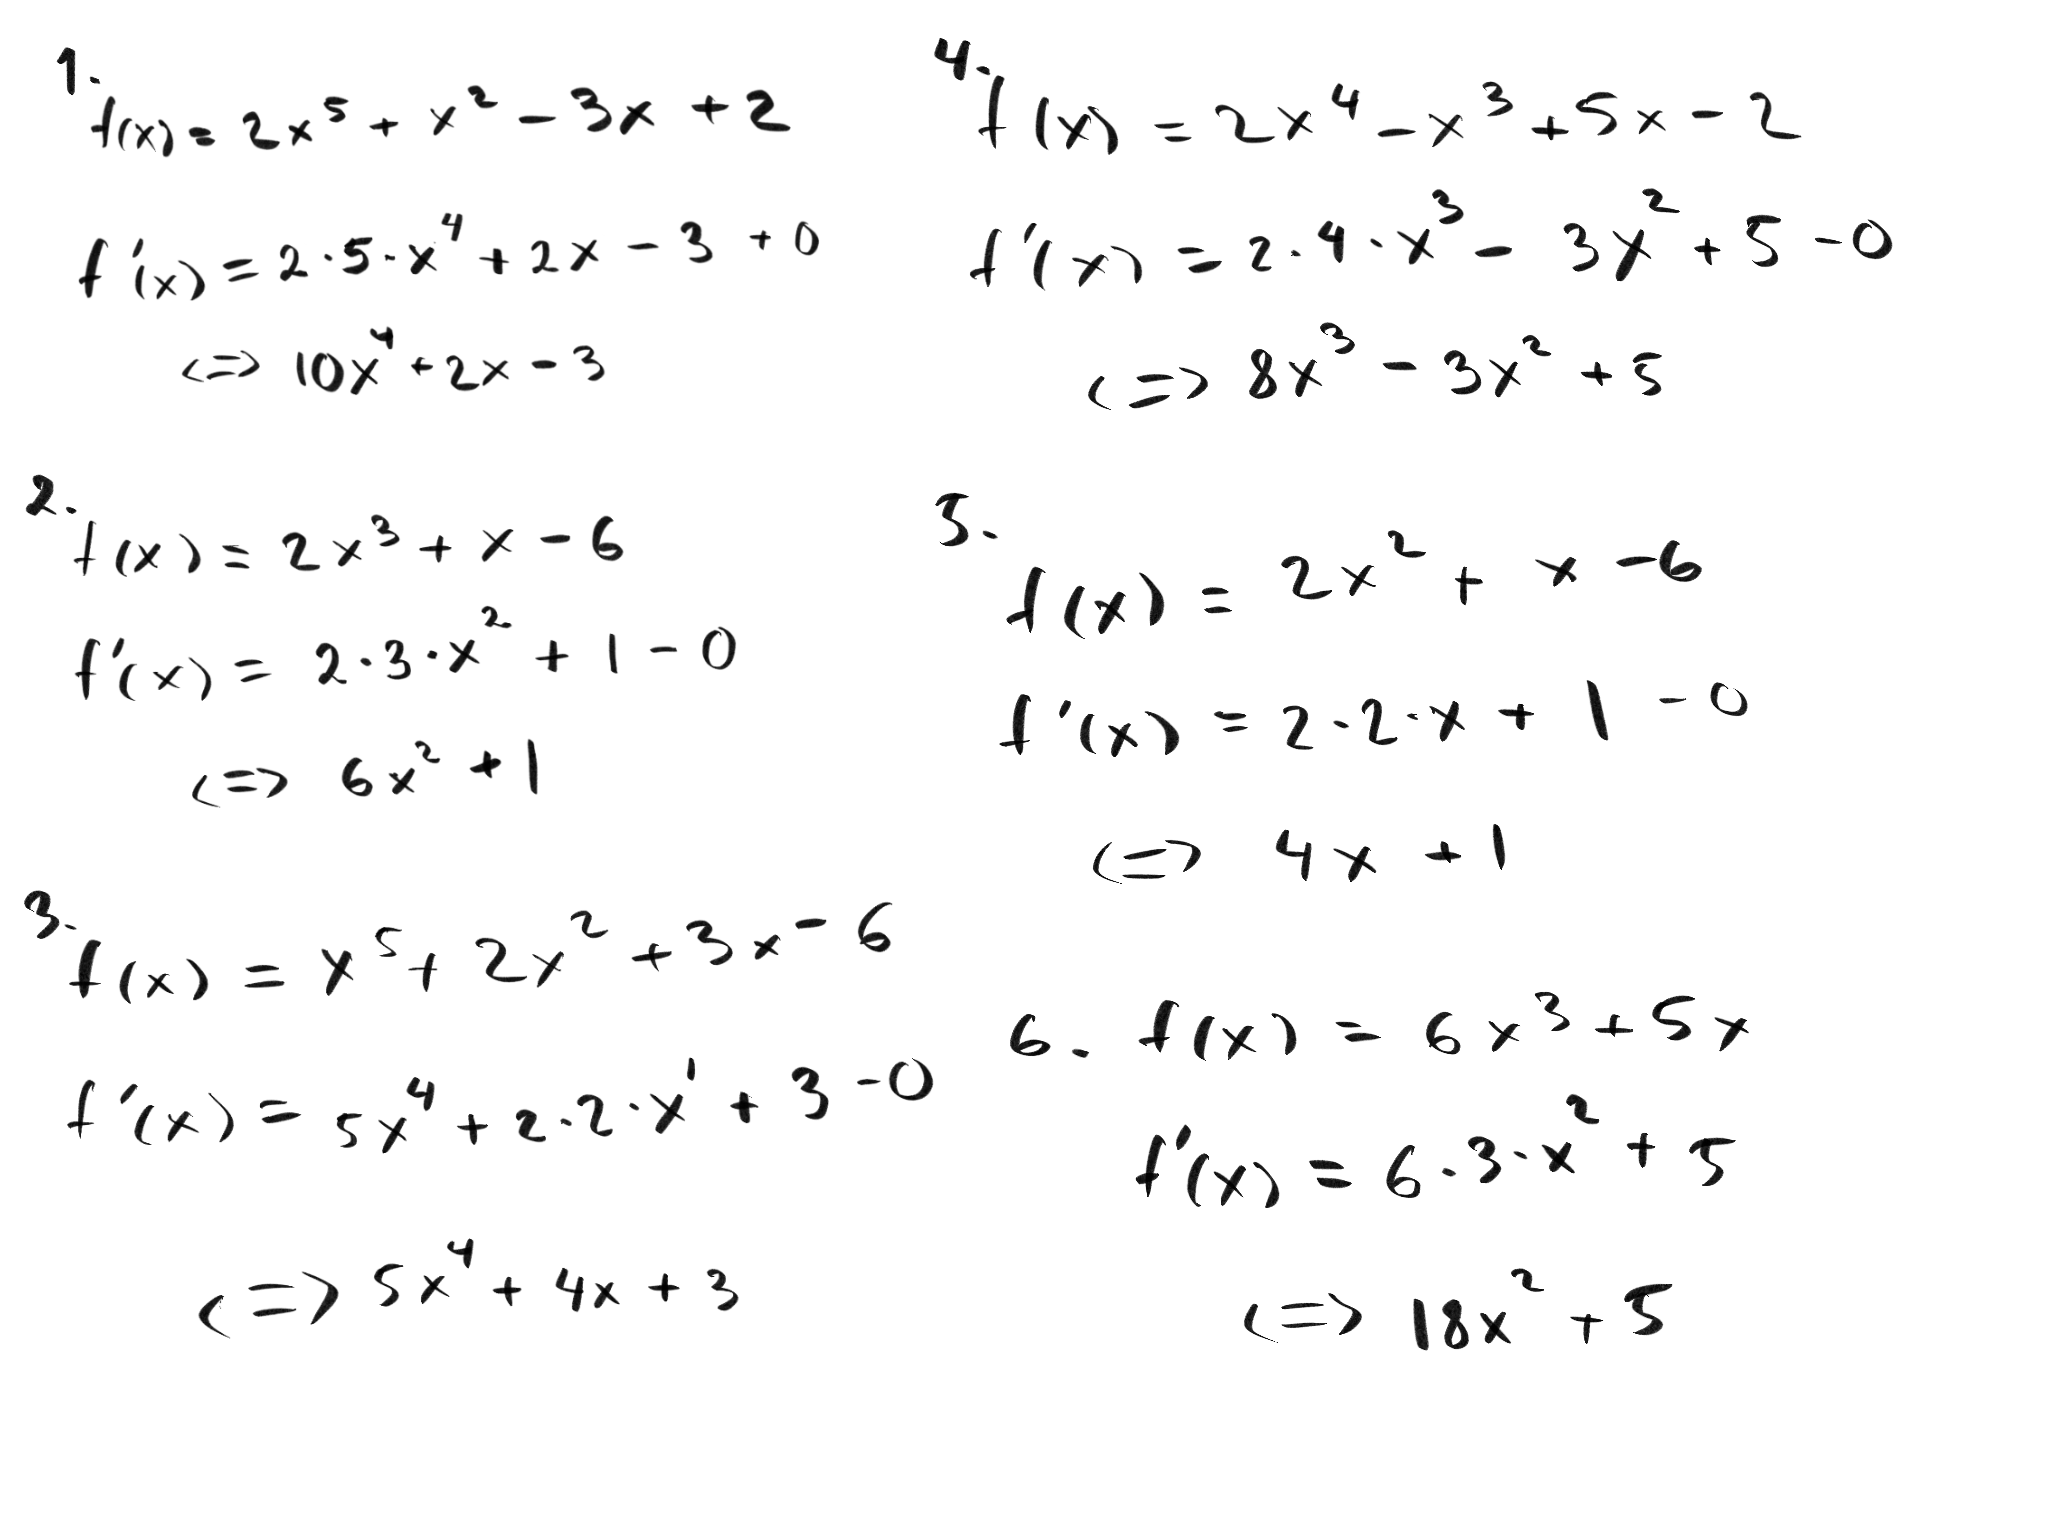 1. f(x) = 2x⁵ + x² - 3x + 2
f'(x) = 2·5·x⁴ + 2x - 3 + 0
<=> 10x⁴ + 2x - 3
2. f(x) = 2x³ + x - 6
f'(x) = 2·3·x² + 1 - 0
<=> 6x² + 1
3. f(x) = x⁵ + 2x² + 3x - 6
f'(x) = 5x⁴ + 2·2·x¹ + 3 - 0
<=> 5x⁴ + 4x + 3
4. f(x) = 2x⁴ - x³ + 5x - 2
f'(x) = 2·4·x³ - 3x² + 5 - 0
<=> 8x³ - 3x² + 5
5. f(x) = 2x² + x - 6
f'(x) = 2·2·x + 1 - 0
<=> 4x + 1
6. f(x) = 6x³ + 5x
f'(x) = 6·3·x² + 5
<=> 18x² + 5